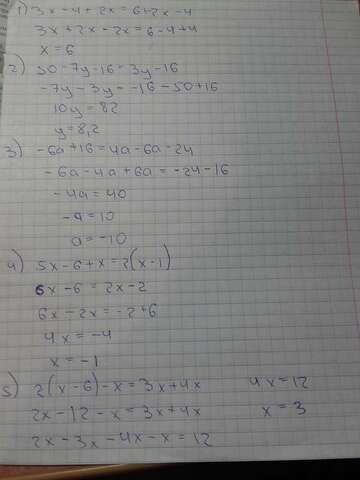 1) 3x - 4 + 2x = 6 + 2x - 4
3x + 2x - 2x = 6 - 4 + 4
x = 6
2) 50 - 7y - 16 = 3y - 16
-7y - 3y = -16 - 50 + 16
10y = 82
y = 8,2
3) -6a + 16 = 4a - 6a - 24
-6a - 4a + 6a = -24 - 16
-4a = 40
-a = 10
a = -10
4) 5x - 6 + x = 2(x - 1)
6x - 6 = 2x - 2
6x - 2x = -2 + 6
4x = -4
x = -1
5) 2(x - 6) - x = 3x + 4x
2x - 12 - x = 3x + 4x
2x - 3x - 4x - x = 12
4x = 12
x = 3